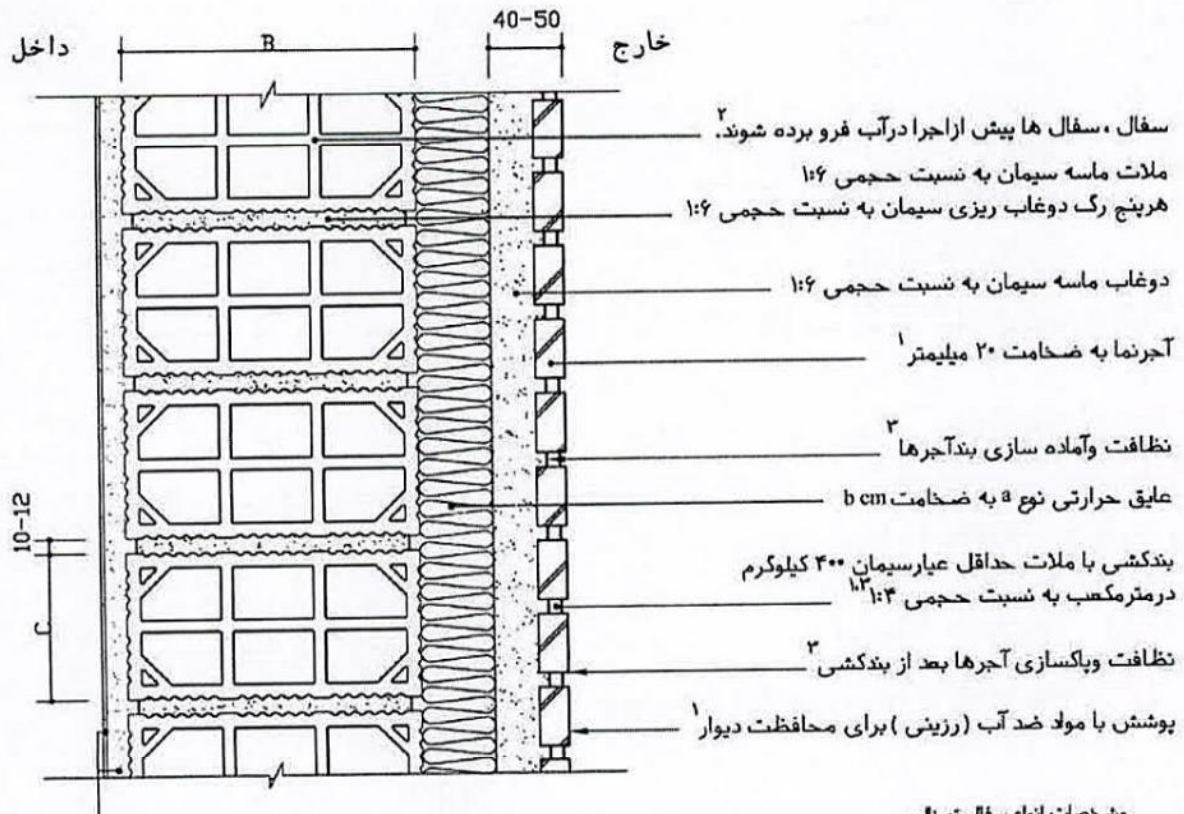 40-50
داخل
B
خارج
سفال ، سفال ها پیش ازاجرا درآب فرو برده شوند.۲
ملات ماسه سیمان به نسبت حجمی ۱:۶
هرپنج رگ دوغاب ریزی سیمان به نسبت حجمی ۱:۶
دوغاب ماسه سیمان به نسبت حجمی ۱:۶
آجرنما به ضخامت ۲۰ میلیمتر۱
نظافت وآماده سازی بندآجرها۳
عایق حرارتی نوع a به ضخامت b cm
10-12
بندکشی با ملات حداقل عیارسیمان ۴۰۰ کیلوگرم
درمترمکعب به نسبت حجمی ۱:۴ ۱،۳
C
نظافت وپاکسازی آجرها بعد از بندکشی۳
پوشش با مواد ضد آب (رزینی) برای محافظت دیوار۱